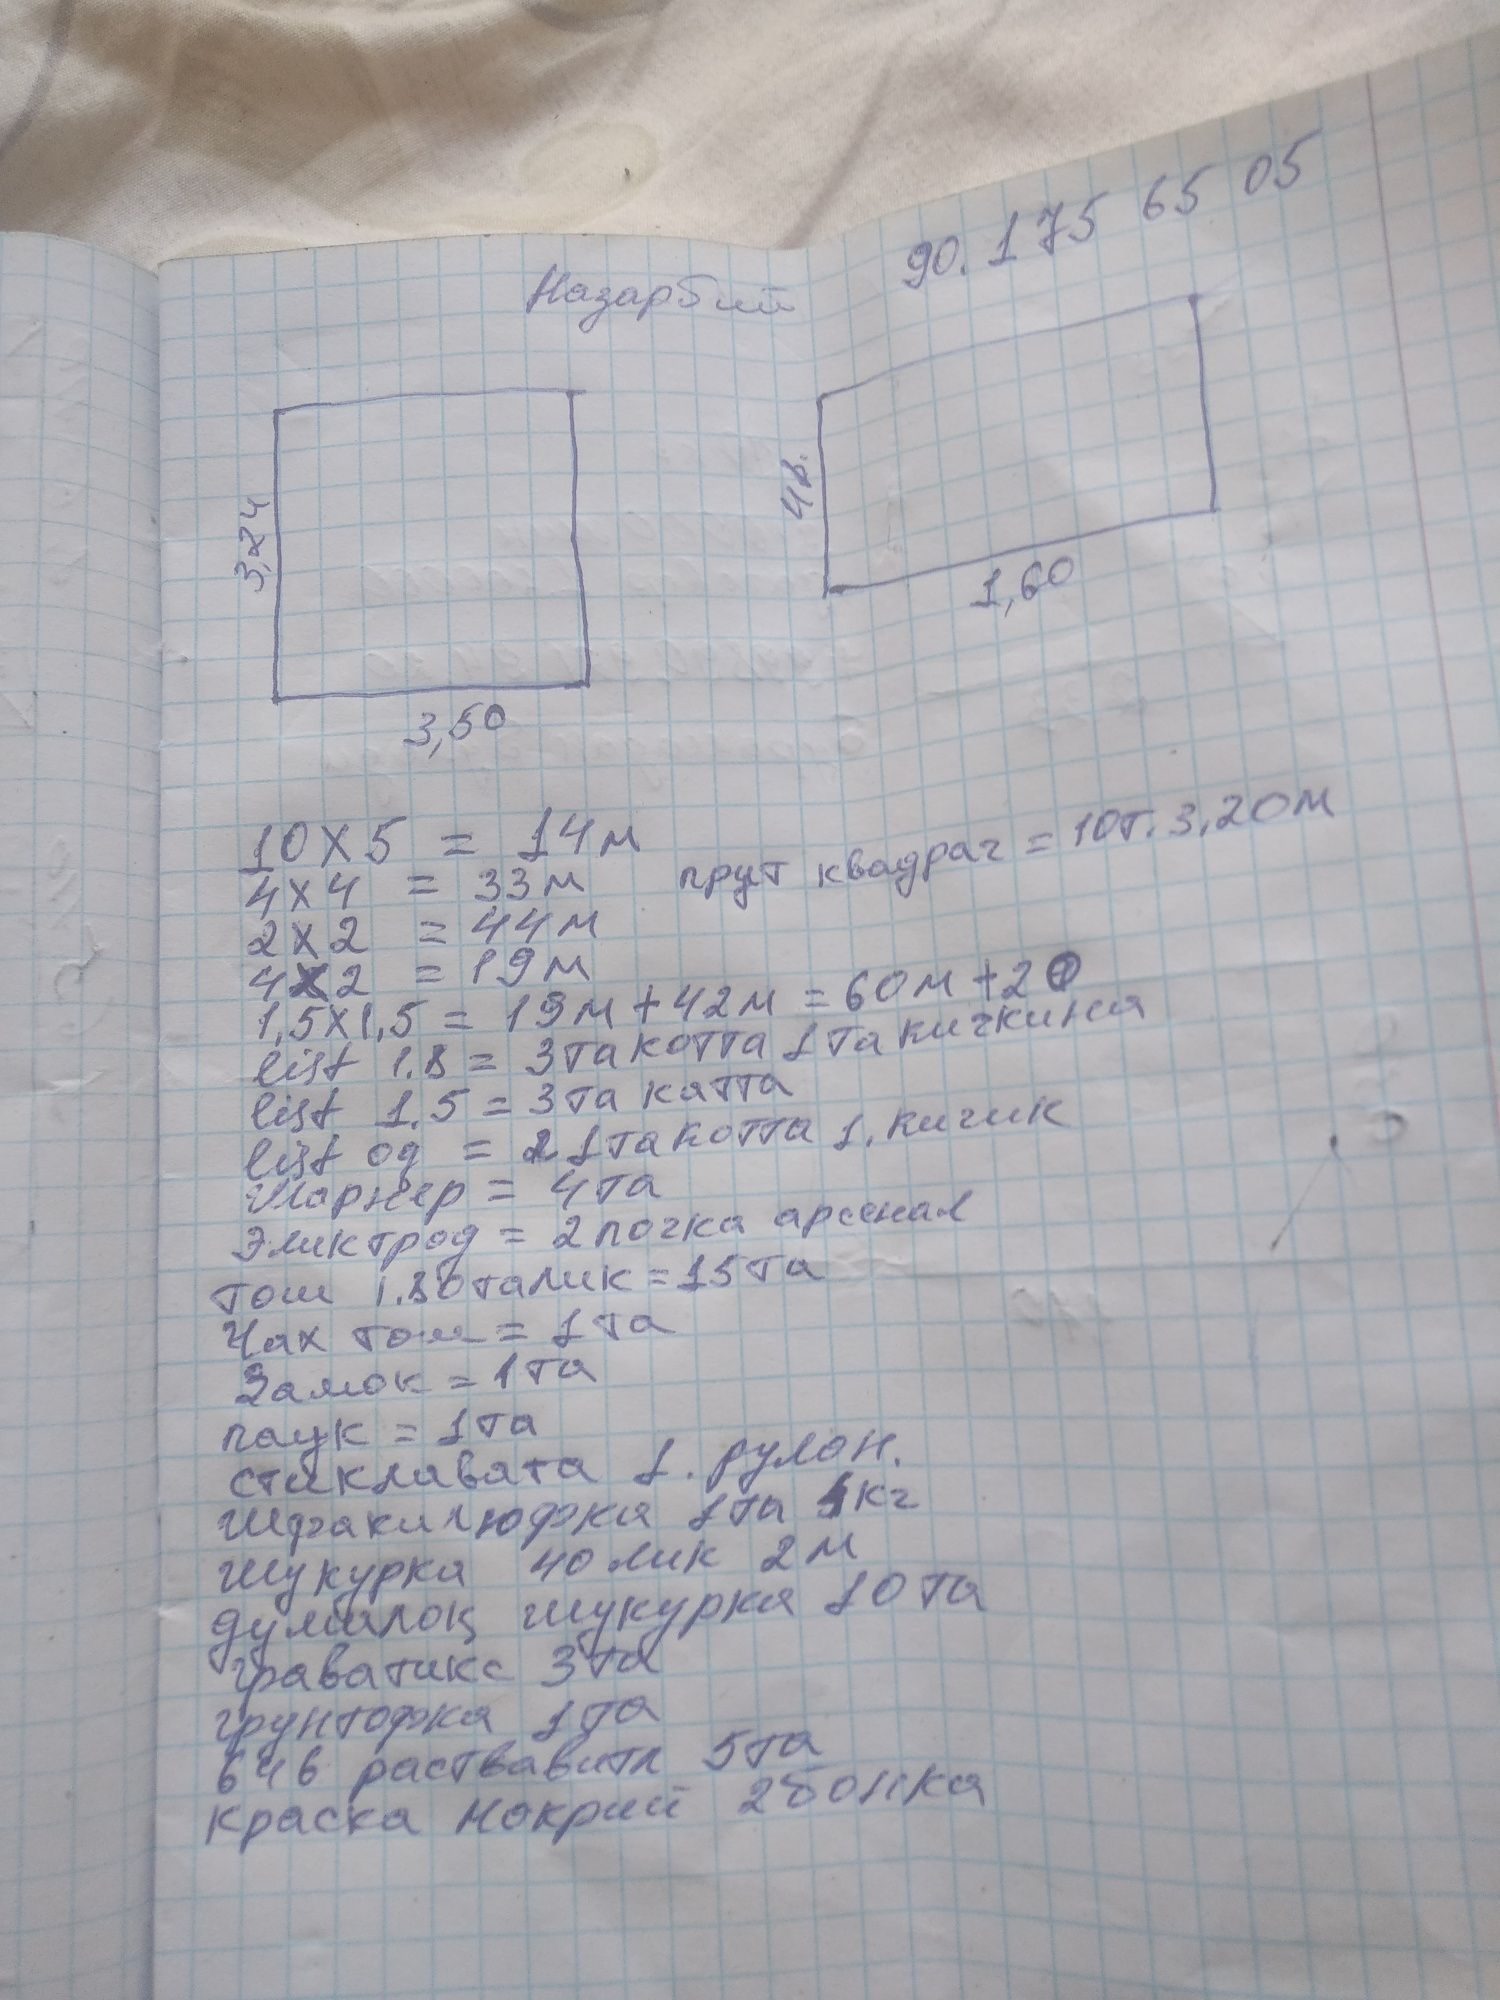 90. 175 65 05
Назарбий
3,24
3,50
4в.
1,60
10х5 = 14м
4х4 = 33м прут квадрат = 10т. 3,20м
2х2 = 44м
4х2 = 19м
1,5х1,5 = 19м + 42м = 60м + 20
list 1.8 = 3та котта 1та кичкиня
list 1.5 = 3та катта
list од = 1та котта 1. кичик
Шарнер = 4та
Электрод = 2 почка арсенал
тош 1.80талик = 15та
Чах тош = 1та
Замок = 1та
паук = 1та
стиклавата 1. рулон.
Шпакилюфка 1та 4кг
Шукурка 40лик 2м
думалоц шукурка 10та
граватикс 3та
грунтофка 1та
646 раствавитл 5та
краска мокрий 2бонка